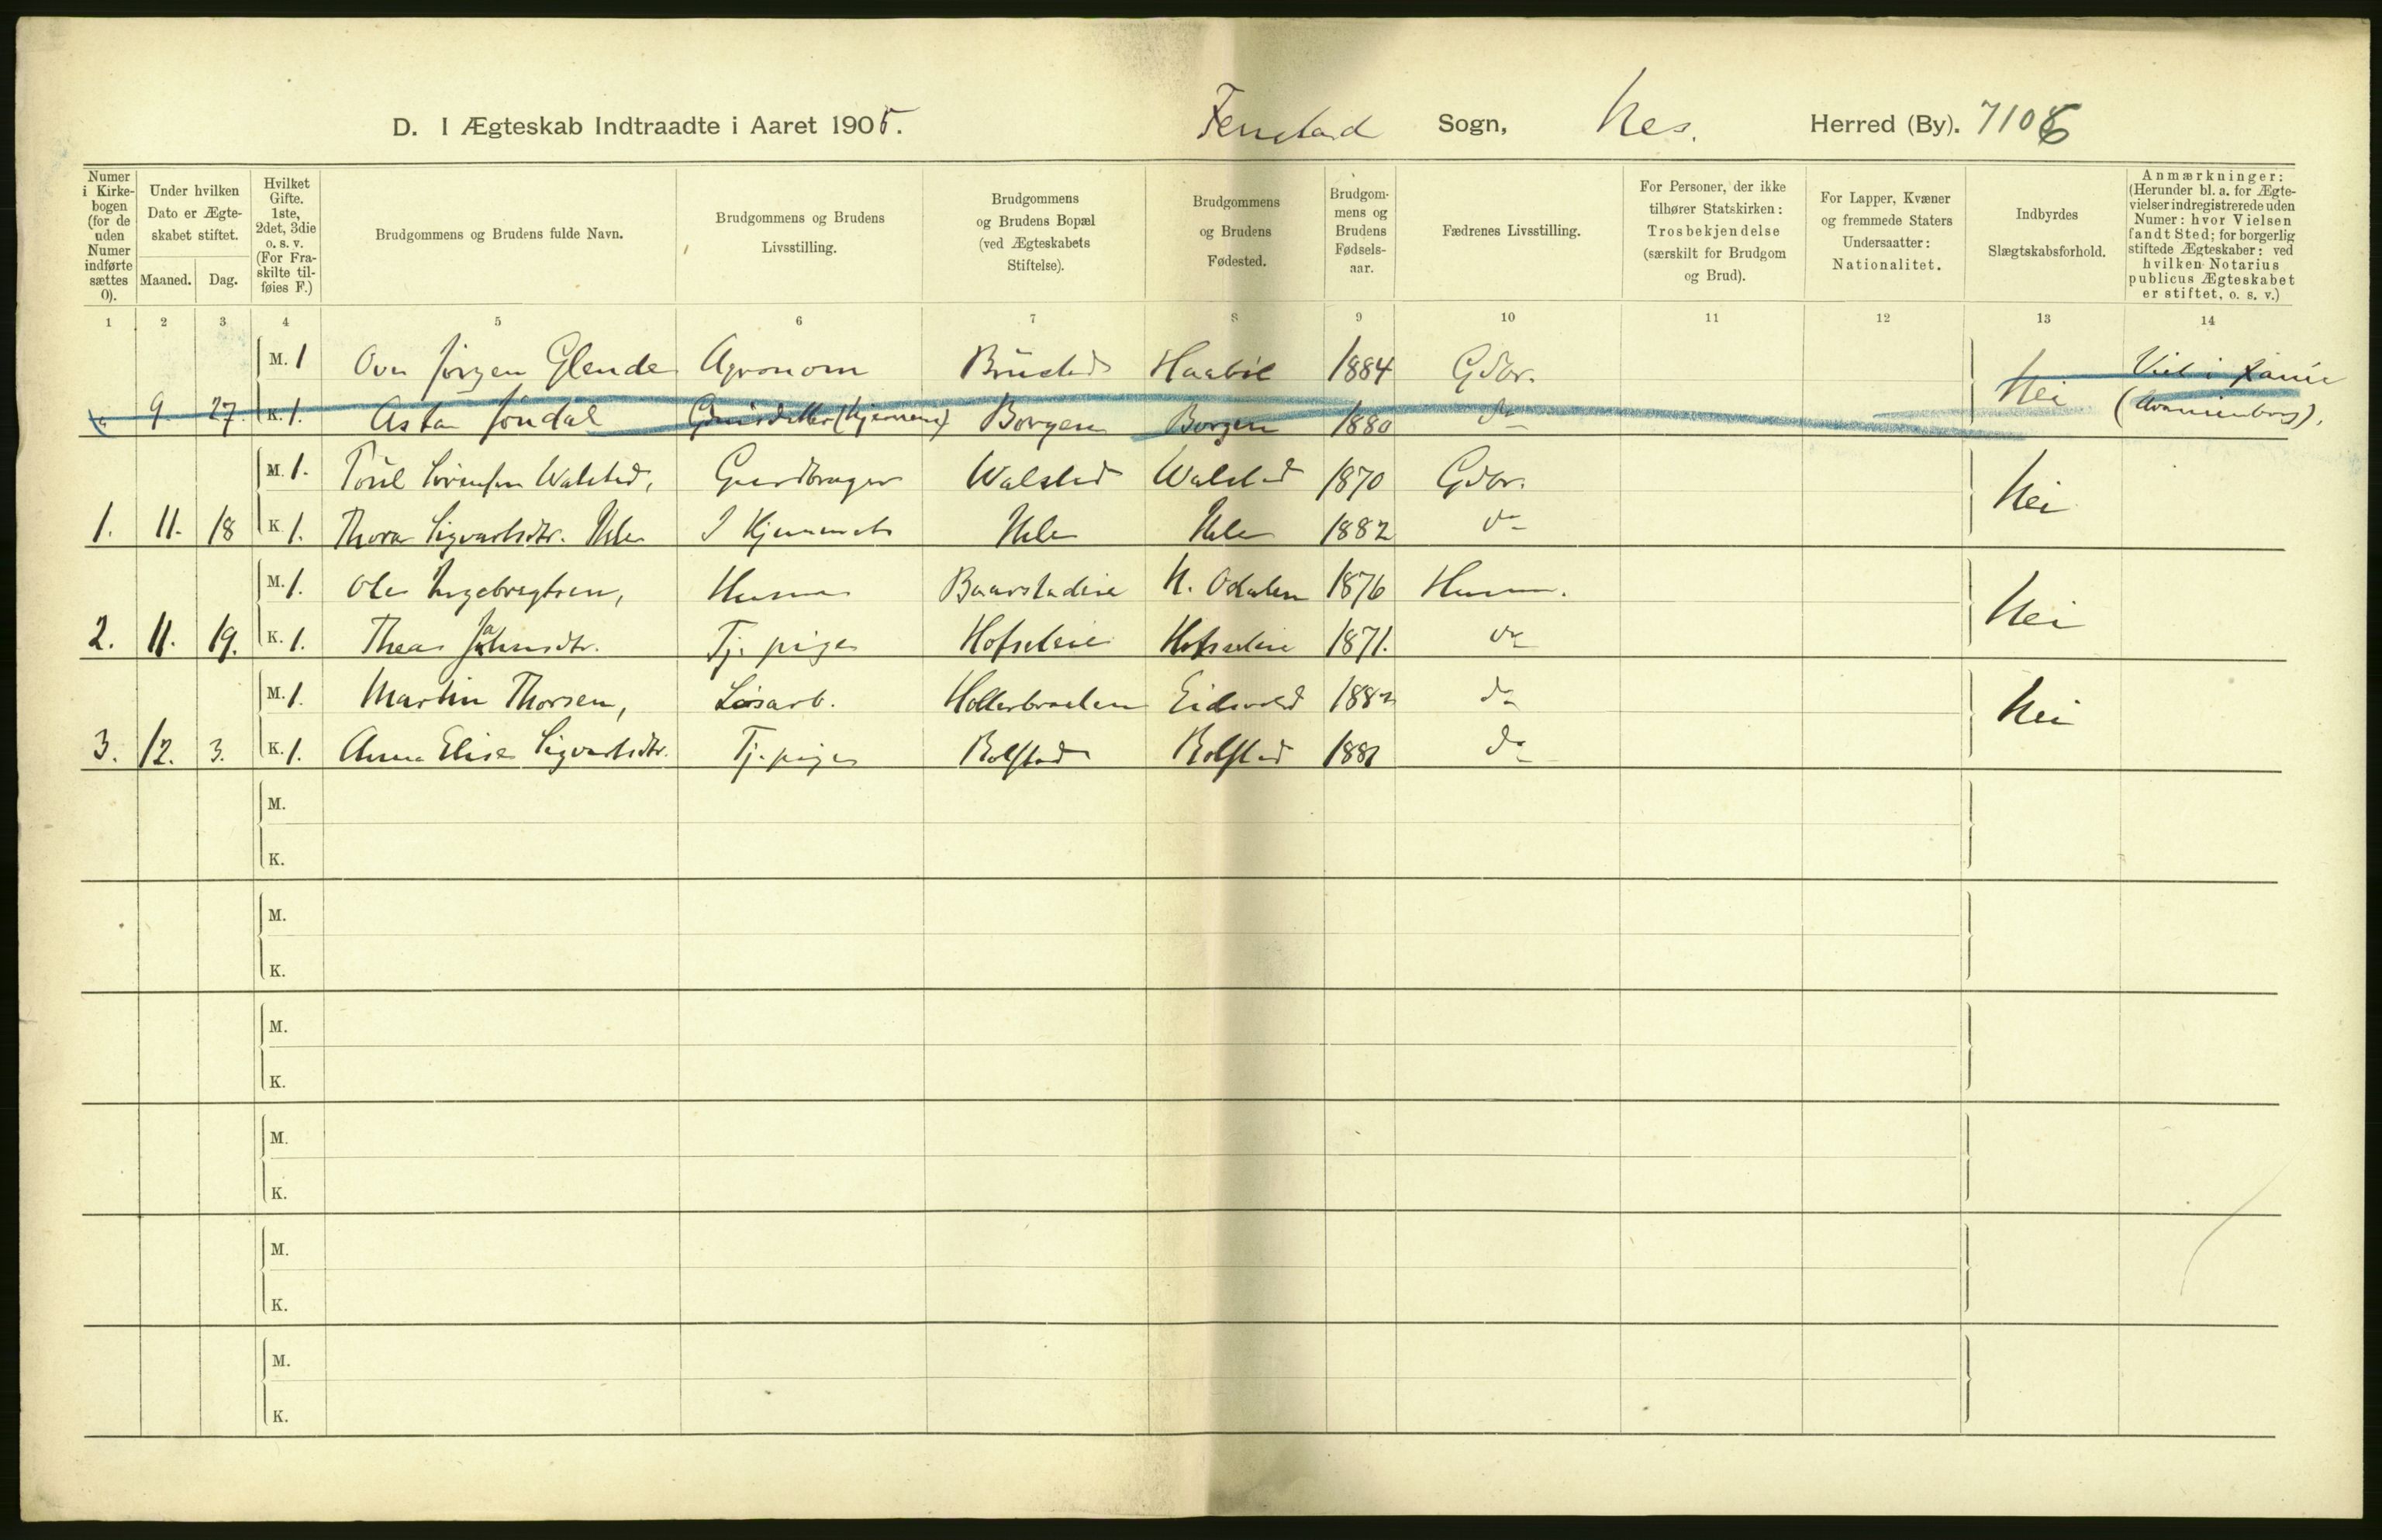 D. I Ægteskab Indtraadte i Aaret 1905. Fenstad Sogn, Nes. Herred (By). 7106
Numer i Kirkebogen (for de uden Numer indførte sættes 0).
Under hvilken Dato er Ægteskabet stiftet.
Maaned. Dag.
Hvilket Gifte. 1ste, 2det, 3die o. s. v. (For Fraskilte tilføies F.)
Brudgommens og Brudens fulde Navn.
Brudgommens og Brudens Livsstilling.
Brudgommens og Brudens Bopæl (ved Ægteskabets Stiftelse).
Brudgommens og Brudens Fødested.
Brudgommens og Brudens Fødselsaar.
Fædrenes Livsstilling.
For Personer, der ikke tilhører Statskirken: Trosbekjendelse (særskilt for Brudgom og Brud).
For Lapper, Kvæner og fremmede Staters Undersaatter: Nationalitet.
Indbyrdes Slægtskabsforhold.
Anmærkninger: (Herunder bl. a. for Ægtevielser indregistrerede uden Numer: hvor Vielsen fandt Sted; for borgerlig stiftede Ægteskaber: ved hvilken Notarius publicus Ægteskabet er stiftet, o. s. v.)
1 2 3 4 5 6 7 8 9 10 11 12 13 14
M. 1 Ove Jørgen Glende Agronom 1884 Gdbr. Nei
9. 27. K. 1. Asta Jøndal Borgen Borgen 1880 do
M. 1. Poul Sørensen Walstad, Gaardbruger Walstad Walstad 1870 Gdbr. Nei
1. 11. 18 K. 1. Thora Sigvartsdtr. I Hjemmet 1882 do
M. 1. Ole Ingebregtsen, Husm. Baarstadeie N. Odalen 1876 Husm. Nei
2. 11. 19. K. 1. Thea Tj. pige 1871. do
M. 1. Martin Thorsen, Løsarb. Eidsvold 1882 do Nei
3. 12. 3. K. 1. Anna Elise Sigvartsdtr. Tj. pige Rolstad Rolstad 1881 do
M.
K.
M.
K.
M.
K.
M.
K.
M.
K.
M.
K.